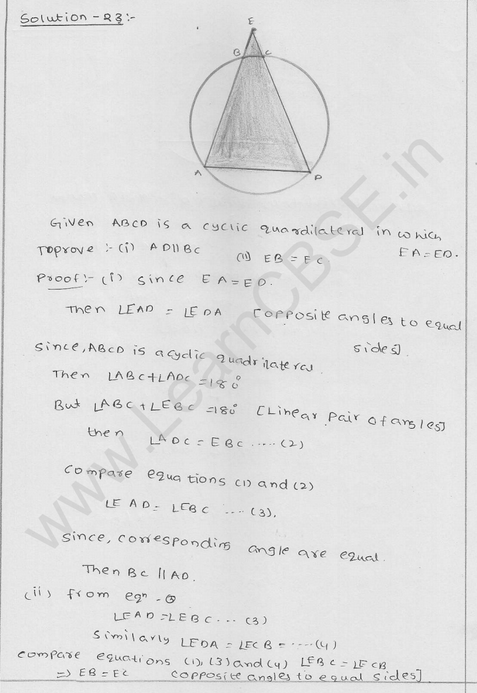 Solution-23:-
E
B C
A D
Given ABCD is a cyclic quardilateral in which
EA=ED.
Toprove:- (i) AD||BC (ii) EB=EC.
Proof:- (i) since EA=ED.
Then ∠EAD = ∠EDA [opposite angles to equal
sides].
Since, ABCD is a cyclic quadrilateral.
Then ∠ABC+∠ADC=180°
But ∠ABC+∠EBC=180° [Linear pair of angles]
then ∠ADC = EBC ....(2)
Compare equations (1) and (2)
∠EAD=∠EBC ....(3).
since, corresponding angle are equal.
Then BC||AD.
(ii) from eqn-③
∠EAD=∠EBC...(3)
Similarly ∠EDA = ∠ECB = ....(4)
Compare equations (1), (3) and (4) ∠EBC=∠ECB
=> EB=EC [opposite angles to equal sides]
www.LearnCBSE.in